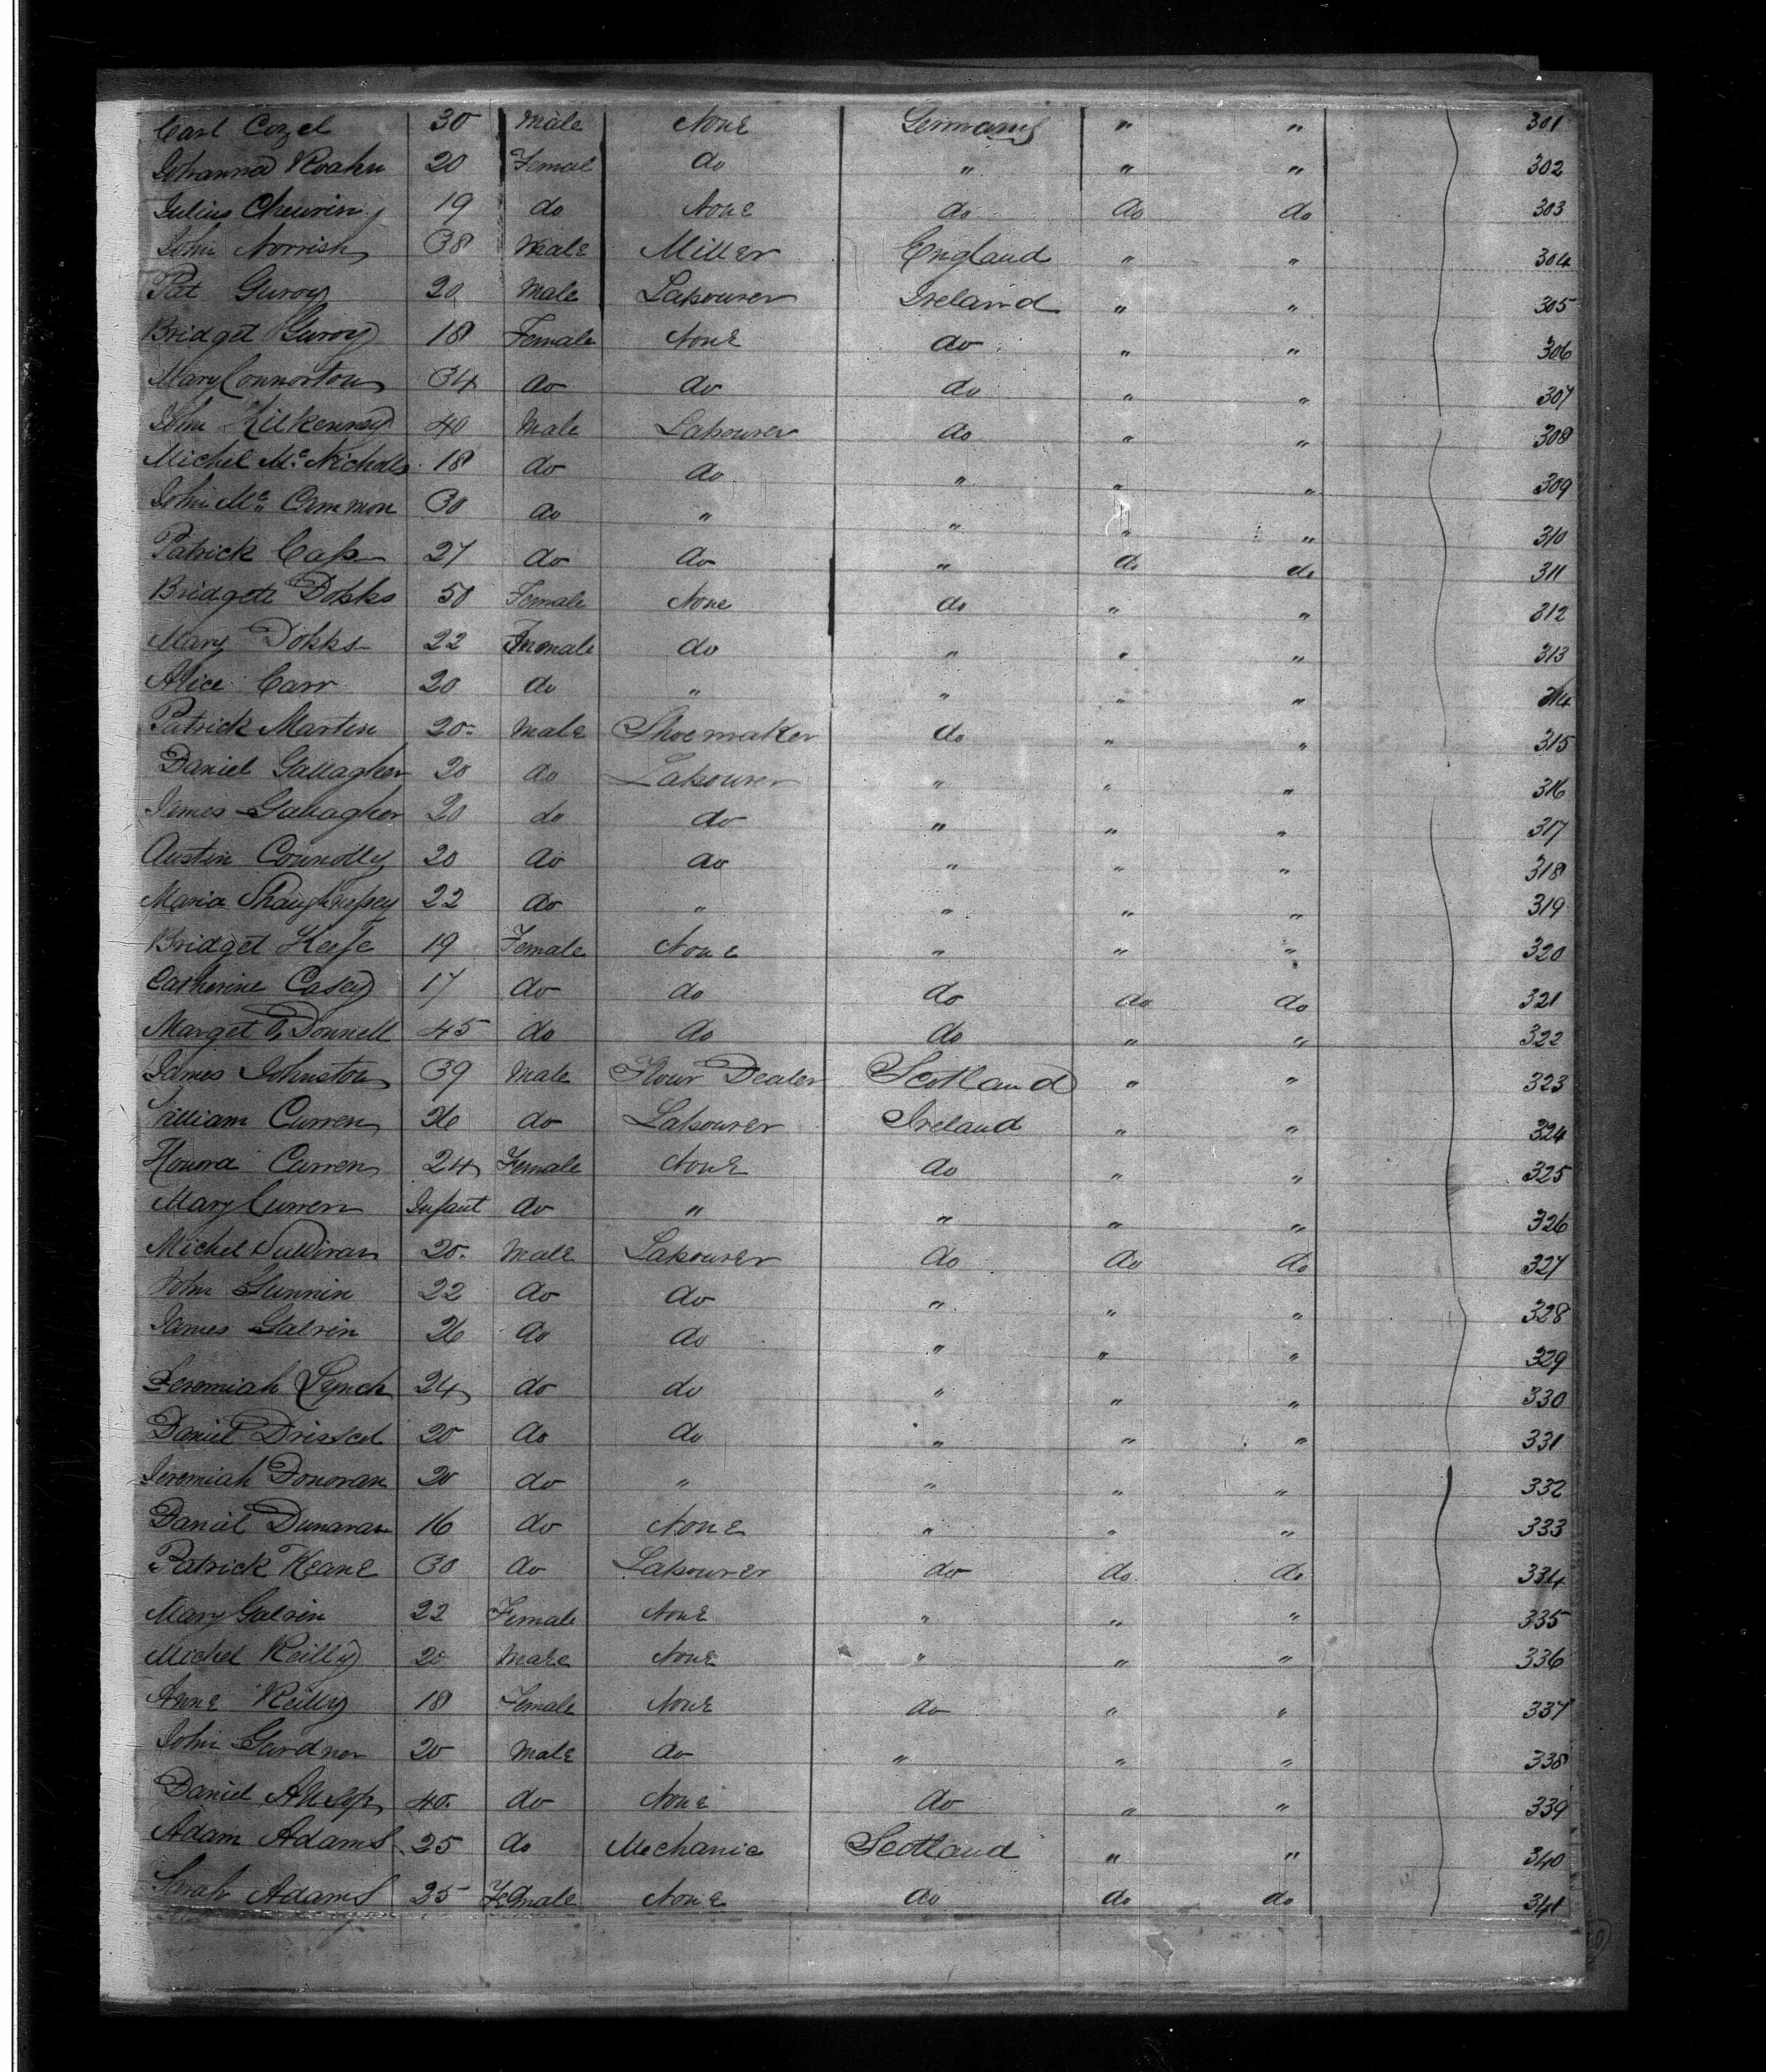 Carl Cozel 30 Male None Germany " " 301
Johanna Roahn 20 Femal do " " " 302
Julius Cheuring 19 do None do do do 303
John Norrish 38 Male Miller England " " 304
Pat Guroy 20 Male Labourer Ireland " " 305
Bridget Guroy 18 Female None do " " 306
Mary Connorton 34 do do do " " 307
John Kilkenney 40 Male Labourer do " " 308
Michel McNicholls 18 do do " " " 309
John Mc Cammon 30 do " " " " 310
Patrick Cass 27 do do " do do 311
Bridgett Dobbs 50 Female None do " " 312
Mary Dobbs 22 Female do " " " 313
Alice Carr 20 do " " " " 314
Patrick Martin 20 Male Shoemaker do " " 315
Daniel Gallagher 20 do Labourer " " " 316
James Gallagher 20 do do " " " 317
Austin Connolly 20 do do " " " 318
Maria Shaughnessy 22 do " " " " 319
Bridget Keefe 19 Female None " " " 320
Catherine Casey 17 do do do do do 321
Marget O'Donnell 45 do do do " " 322
James Johnston 39 Male Flour Dealer Scotland " " 323
William Curren 26 do Labourer Ireland " " 324
Honora Curren 24 Female None do " " 325
Mary Curren Infant do " " " " 326
Michel Sullivan 20 Male Labourer do do do 327
John 22 do do " " " 328
James Galvin 26 do do " " " 329
Jeremiah Lynch 24 do do " " " 330
Daniel Driscol 20 do do " " " 331
Jeremiah Donovan 20 do " " " " 332
Daniel Dunavan 16 do None " " " 333
Patrick Keane 30 do Labourer do do do 334
Mary Galvin 22 Female None " " " 335
Michel Reilly 20 Male None " " " 336
Anne Reilly 18 Female None do " " 337
John Gardner 20 Male do " " " 338
Daniel 40 do None do " " 339
Adam Adams 25 do Mechanic Scotland " " 340
Sarah Adams 25 Female None do do do 341